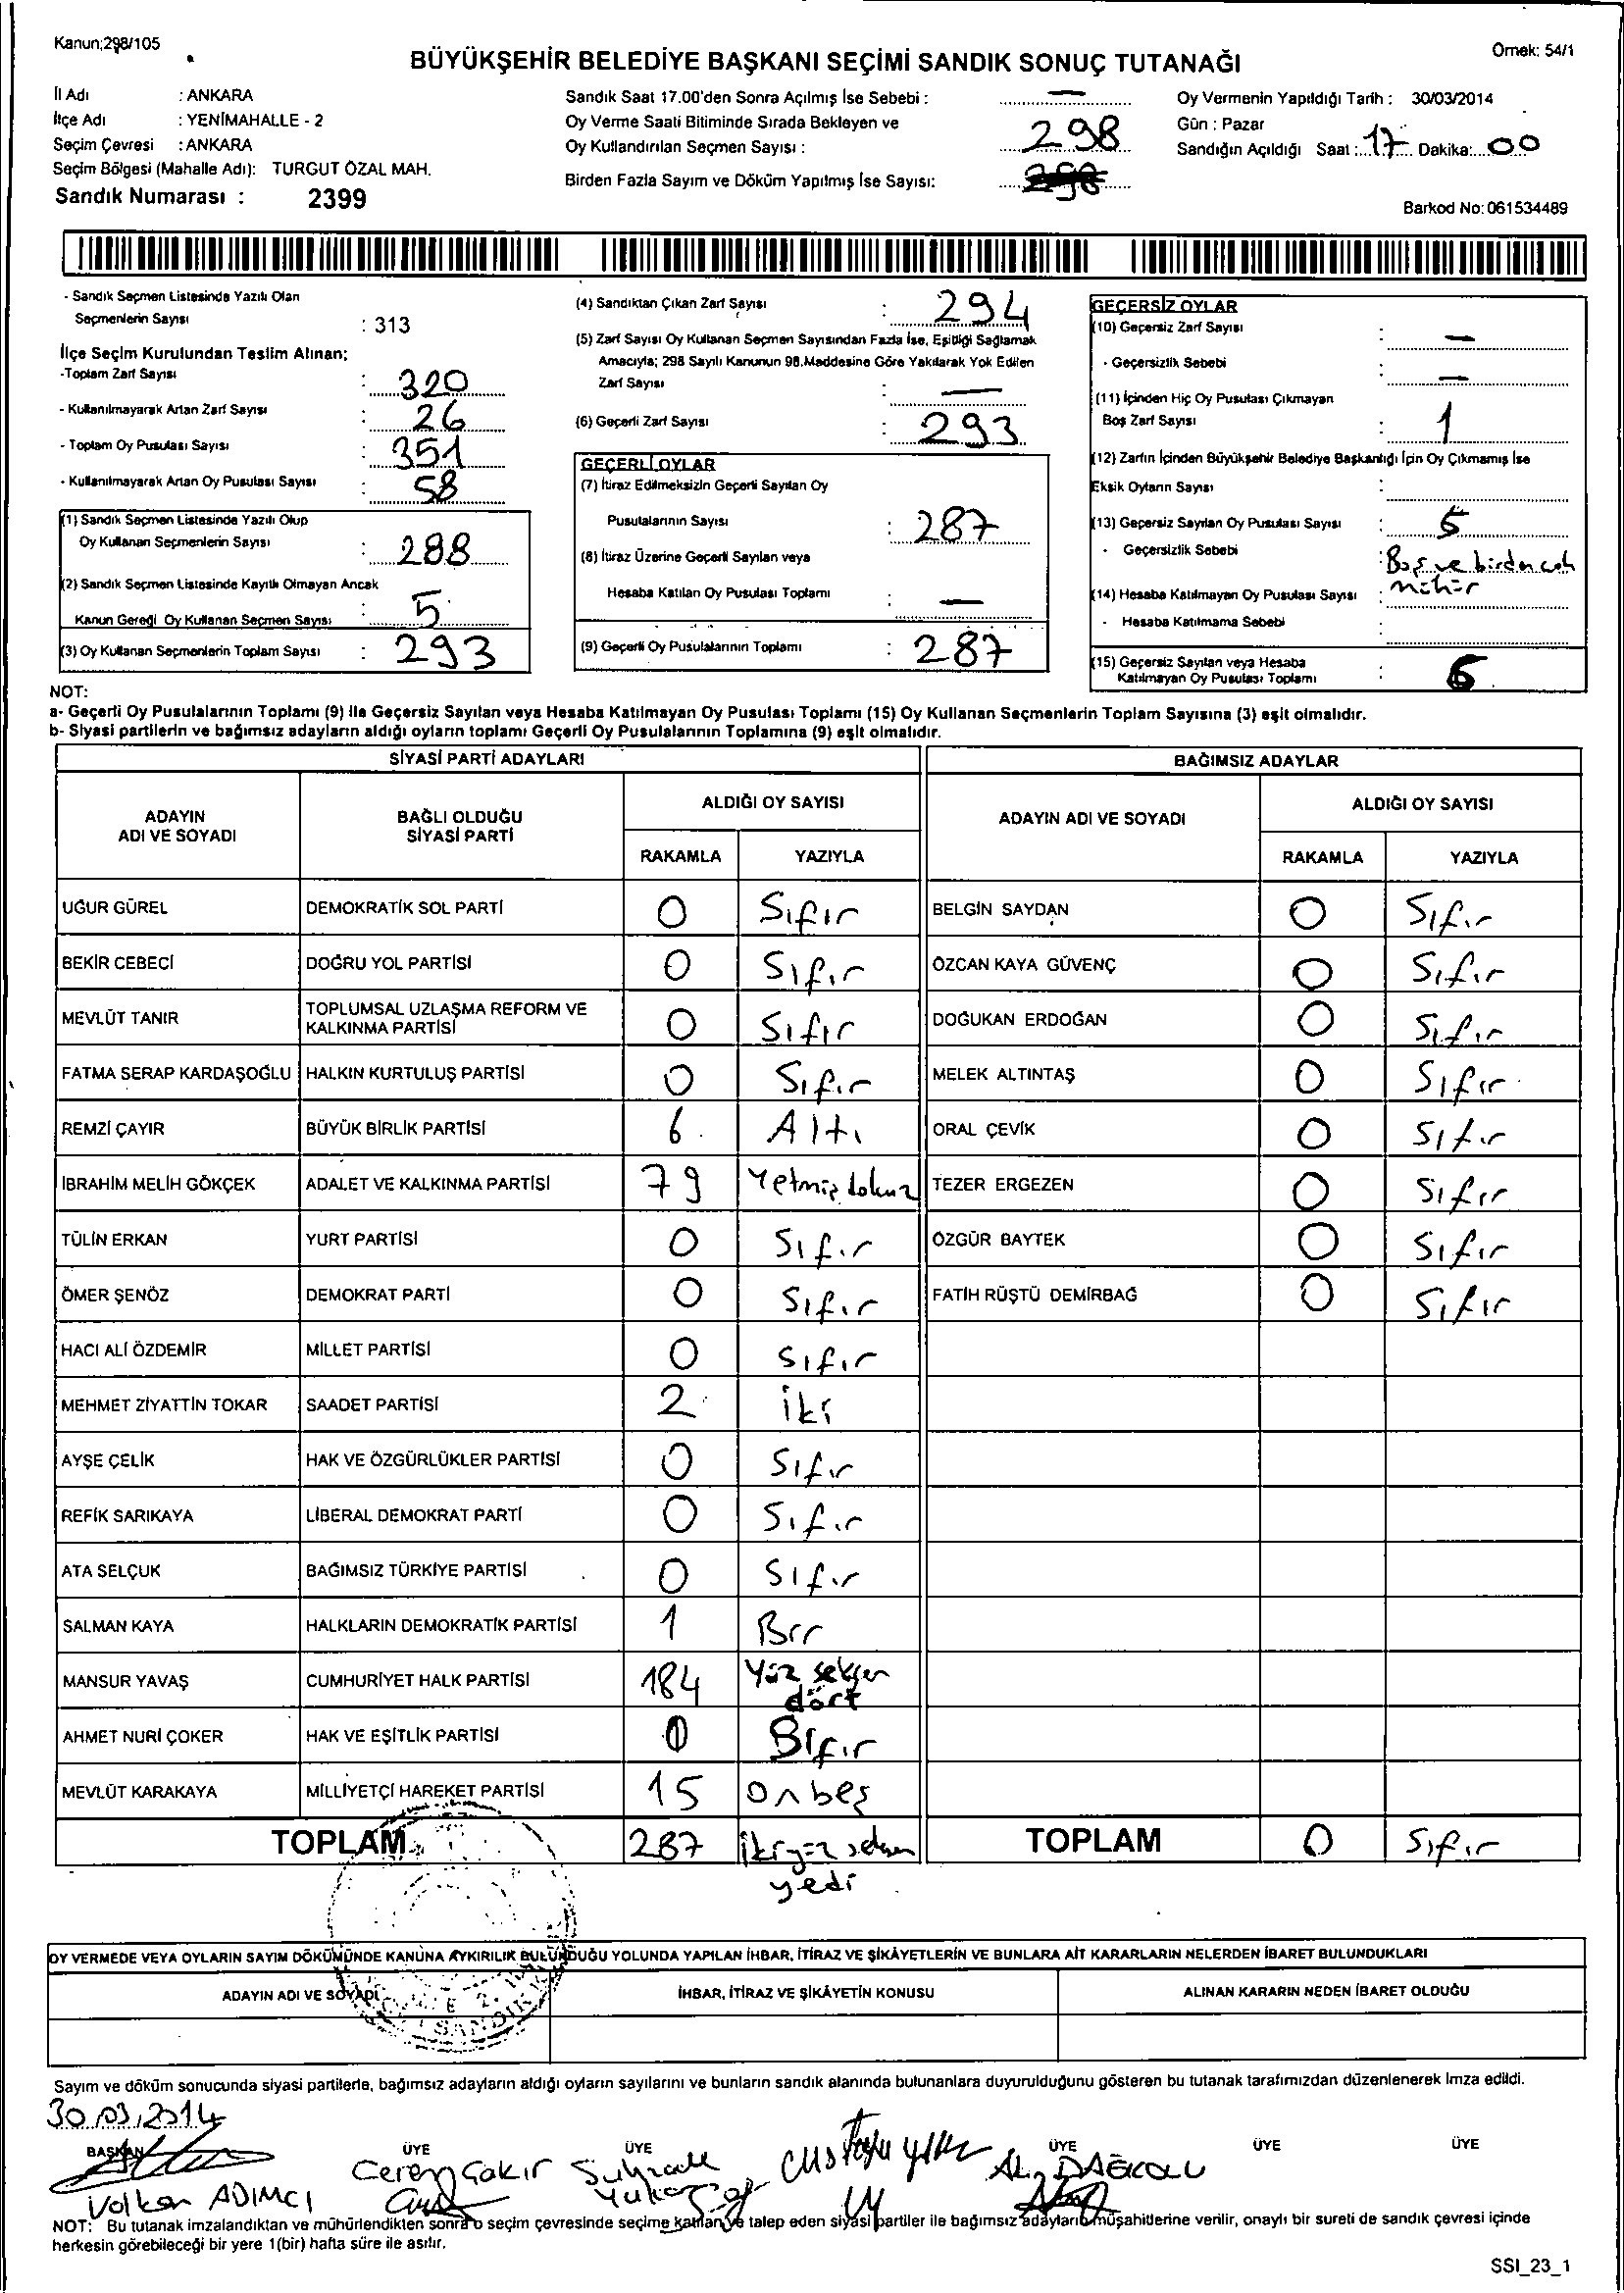 Kanun;298/105
Örnek: 54/1
BÜYÜKŞEHİR BELEDİYE BAŞKANI SEÇİMİ SANDIK SONUÇ TUTANAĞI
İl Adı : ANKARA
İlçe Adı : YENİMAHALLE - 2
Seçim Çevresi : ANKARA
Seçim Bölgesi (Mahalle Adı): TURGUT ÖZAL MAH.
Sandık Numarası : 2399
Sandık Saat 17.00'den Sonra Açılmış İse Sebebi : —
Oy Verme Saati Bitiminde Sırada Bekleyen ve
Oy Kullandırılan Seçmen Sayısı : 298
Birden Fazla Sayım ve Döküm Yapılmış İse Sayısı:
Oy Vermenin Yapıldığı Tarih : 30/03/2014
Gün : Pazar
Sandığın Açıldığı Saat : 17 Dakika: 00
Barkod No: 061534489
- Sandık Seçmen Listesinde Yazılı Olan
Seçmenlerin Sayısı : 313
İlçe Seçim Kurulundan Teslim Alınan;
-Toplam Zarf Sayısı : 320
- Kullanılmayarak Artan Zarf Sayısı : 26
- Toplam Oy Pusulası Sayısı : 351
- Kullanılmayarak Artan Oy Pusulası Sayısı : 58
(1) Sandık Seçmen Listesinde Yazılı Olup
Oy Kullanan Seçmenlerin Sayısı : 288
(2) Sandık Seçmen Listesinde Kayıtlı Olmayan Ancak
Kanun Gereği Oy Kullanan Seçmen Sayısı : 5
(3) Oy Kullanan Seçmenlerin Toplam Sayısı : 293
(4) Sandıktan Çıkan Zarf Sayısı : 294
(5) Zarf Sayısı Oy Kullanan Seçmen Sayısından Fazla İse, Eşitliği Sağlamak
Amacıyla; 298 Sayılı Kanunun 98.Maddesine Göre Yakılarak Yok Edilen
Zarf Sayısı : —
(6) Geçerli Zarf Sayısı : 293
GEÇERLİ OYLAR
(7) İtiraz Edilmeksizin Geçerli Sayılan Oy
Pusulalarının Sayısı : 287
(8) İtiraz Üzerine Geçerli Sayılan veya
Hesaba Katılan Oy Pusulası Toplamı : —
(9) Geçerli Oy Pusulalarının Toplamı : 287
GEÇERSİZ OYLAR
(10) Geçersiz Zarf Sayısı : —
- Geçersizlik Sebebi : —
(11) İçinden Hiç Oy Pusulası Çıkmayan
Boş Zarf Sayısı : 1
(12) Zarfın İçinden Büyükşehir Belediye Başkanlığı İçin Oy Çıkmamış İse
Eksik Oyların Sayısı :
(13) Geçersiz Sayılan Oy Pusulası Sayısı : 5
- Geçersizlik Sebebi : Boş ve birden çok
mühür
(14) Hesaba Katılmayan Oy Pusulası Sayısı :
- Hesaba Katılmama Sebebi :
(15) Geçersiz Sayılan veya Hesaba
Katılmayan Oy Pusulası Toplamı : 6
NOT:
a- Geçerli Oy Pusulalarının Toplamı (9) ile Geçersiz Sayılan veya Hesaba Katılmayan Oy Pusulası Toplamı (15) Oy Kullanan Seçmenlerin Toplam Sayısına (3) eşit olmalıdır.
b- Siyasi partilerin ve bağımsız adayların aldığı oyların toplamı Geçerli Oy Pusulalarının Toplamına (9) eşit olmalıdır.
SİYASİ PARTİ ADAYLARI BAĞIMSIZ ADAYLAR
ADAYIN ADI VE SOYADI BAĞLI OLDUĞU SİYASİ PARTİ ALDIĞI OY SAYISI ADAYIN ADI VE SOYADI ALDIĞI OY SAYISI
RAKAMLA YAZIYLA RAKAMLA YAZIYLA
UĞUR GÜREL DEMOKRATİK SOL PARTİ 0 Sıfır BELGİN SAYDAN 0 Sıfır
BEKİR CEBECİ DOĞRU YOL PARTİSİ 0 Sıfır ÖZCAN KAYA GÜVENÇ 0 Sıfır
MEVLÜT TANIR TOPLUMSAL UZLAŞMA REFORM VE KALKINMA PARTİSİ 0 Sıfır DOĞUKAN ERDOĞAN 0 Sıfır
FATMA SERAP KARDAŞOĞLU HALKIN KURTULUŞ PARTİSİ 0 Sıfır MELEK ALTINTAŞ 0 Sıfır
REMZİ ÇAYIR BÜYÜK BİRLİK PARTİSİ 6 Altı ORAL ÇEVİK 0 Sıfır
İBRAHİM MELİH GÖKÇEK ADALET VE KALKINMA PARTİSİ 79 Yetmiş dokuz TEZER ERGEZEN 0 Sıfır
TÜLİN ERKAN YURT PARTİSİ 0 Sıfır ÖZGÜR BAYTEK 0 Sıfır
ÖMER ŞENÖZ DEMOKRAT PARTİ 0 Sıfır FATİH RÜŞTÜ DEMİRBAĞ 0 Sıfır
HACI ALİ ÖZDEMİR MİLLET PARTİSİ 0 Sıfır
MEHMET ZİYATTİN TOKAR SAADET PARTİSİ 2 iki
AYŞE ÇELİK HAK VE ÖZGÜRLÜKLER PARTİSİ 0 Sıfır
REFİK SARIKAYA LİBERAL DEMOKRAT PARTİ 0 Sıfır
ATA SELÇUK BAĞIMSIZ TÜRKİYE PARTİSİ 0 Sıfır
SALMAN KAYA HALKLARIN DEMOKRATİK PARTİSİ 1 Bir
MANSUR YAVAŞ CUMHURİYET HALK PARTİSİ 184 Yüz seksen dört
AHMET NURİ ÇOKER HAK VE EŞİTLİK PARTİSİ 0 Sıfır
MEVLÜT KARAKAYA MİLLİYETÇİ HAREKET PARTİSİ 15 on beş
TOPLAM 287 ikiyüz seksen yedi TOPLAM 0 Sıfır
OY VERMEDE VEYA OYLARIN SAYIM DÖKÜMÜNDE KANUNA AYKIRILIK BULUNDUĞU YOLUNDA YAPILAN İHBAR, İTİRAZ VE ŞİKÂYETLERİN VE BUNLARA AİT KARARLARIN NELERDEN İBARET BULUNDUKLARI
ADAYIN ADI VE SOYADI İHBAR, İTİRAZ VE ŞİKÂYETİN KONUSU ALINAN KARARIN NEDEN İBARET OLDUĞU
Sayım ve döküm sonucunda siyasi partilerle, bağımsız adayların aldığı oyların sayılarını ve bunların sandık alanında bulunanlara duyurulduğunu gösteren bu tutanak tarafımızdan düzenlenerek imza edildi.
30.03.2014
BAŞKAN ÜYE ÜYE ÜYE ÜYE ÜYE
Volkan ADIMCI Ceren Çakır
NOT: Bu tutanak imzalandıktan ve mühürlendikten sonra o seçim çevresinde seçime katılan ve talep eden siyasi partiler ile bağımsız adayların müşahitlerine verilir, onaylı bir sureti de sandık çevresi içinde
herkesin görebileceği bir yere 1(bir) hafta süre ile asılır.
SSI_23_1